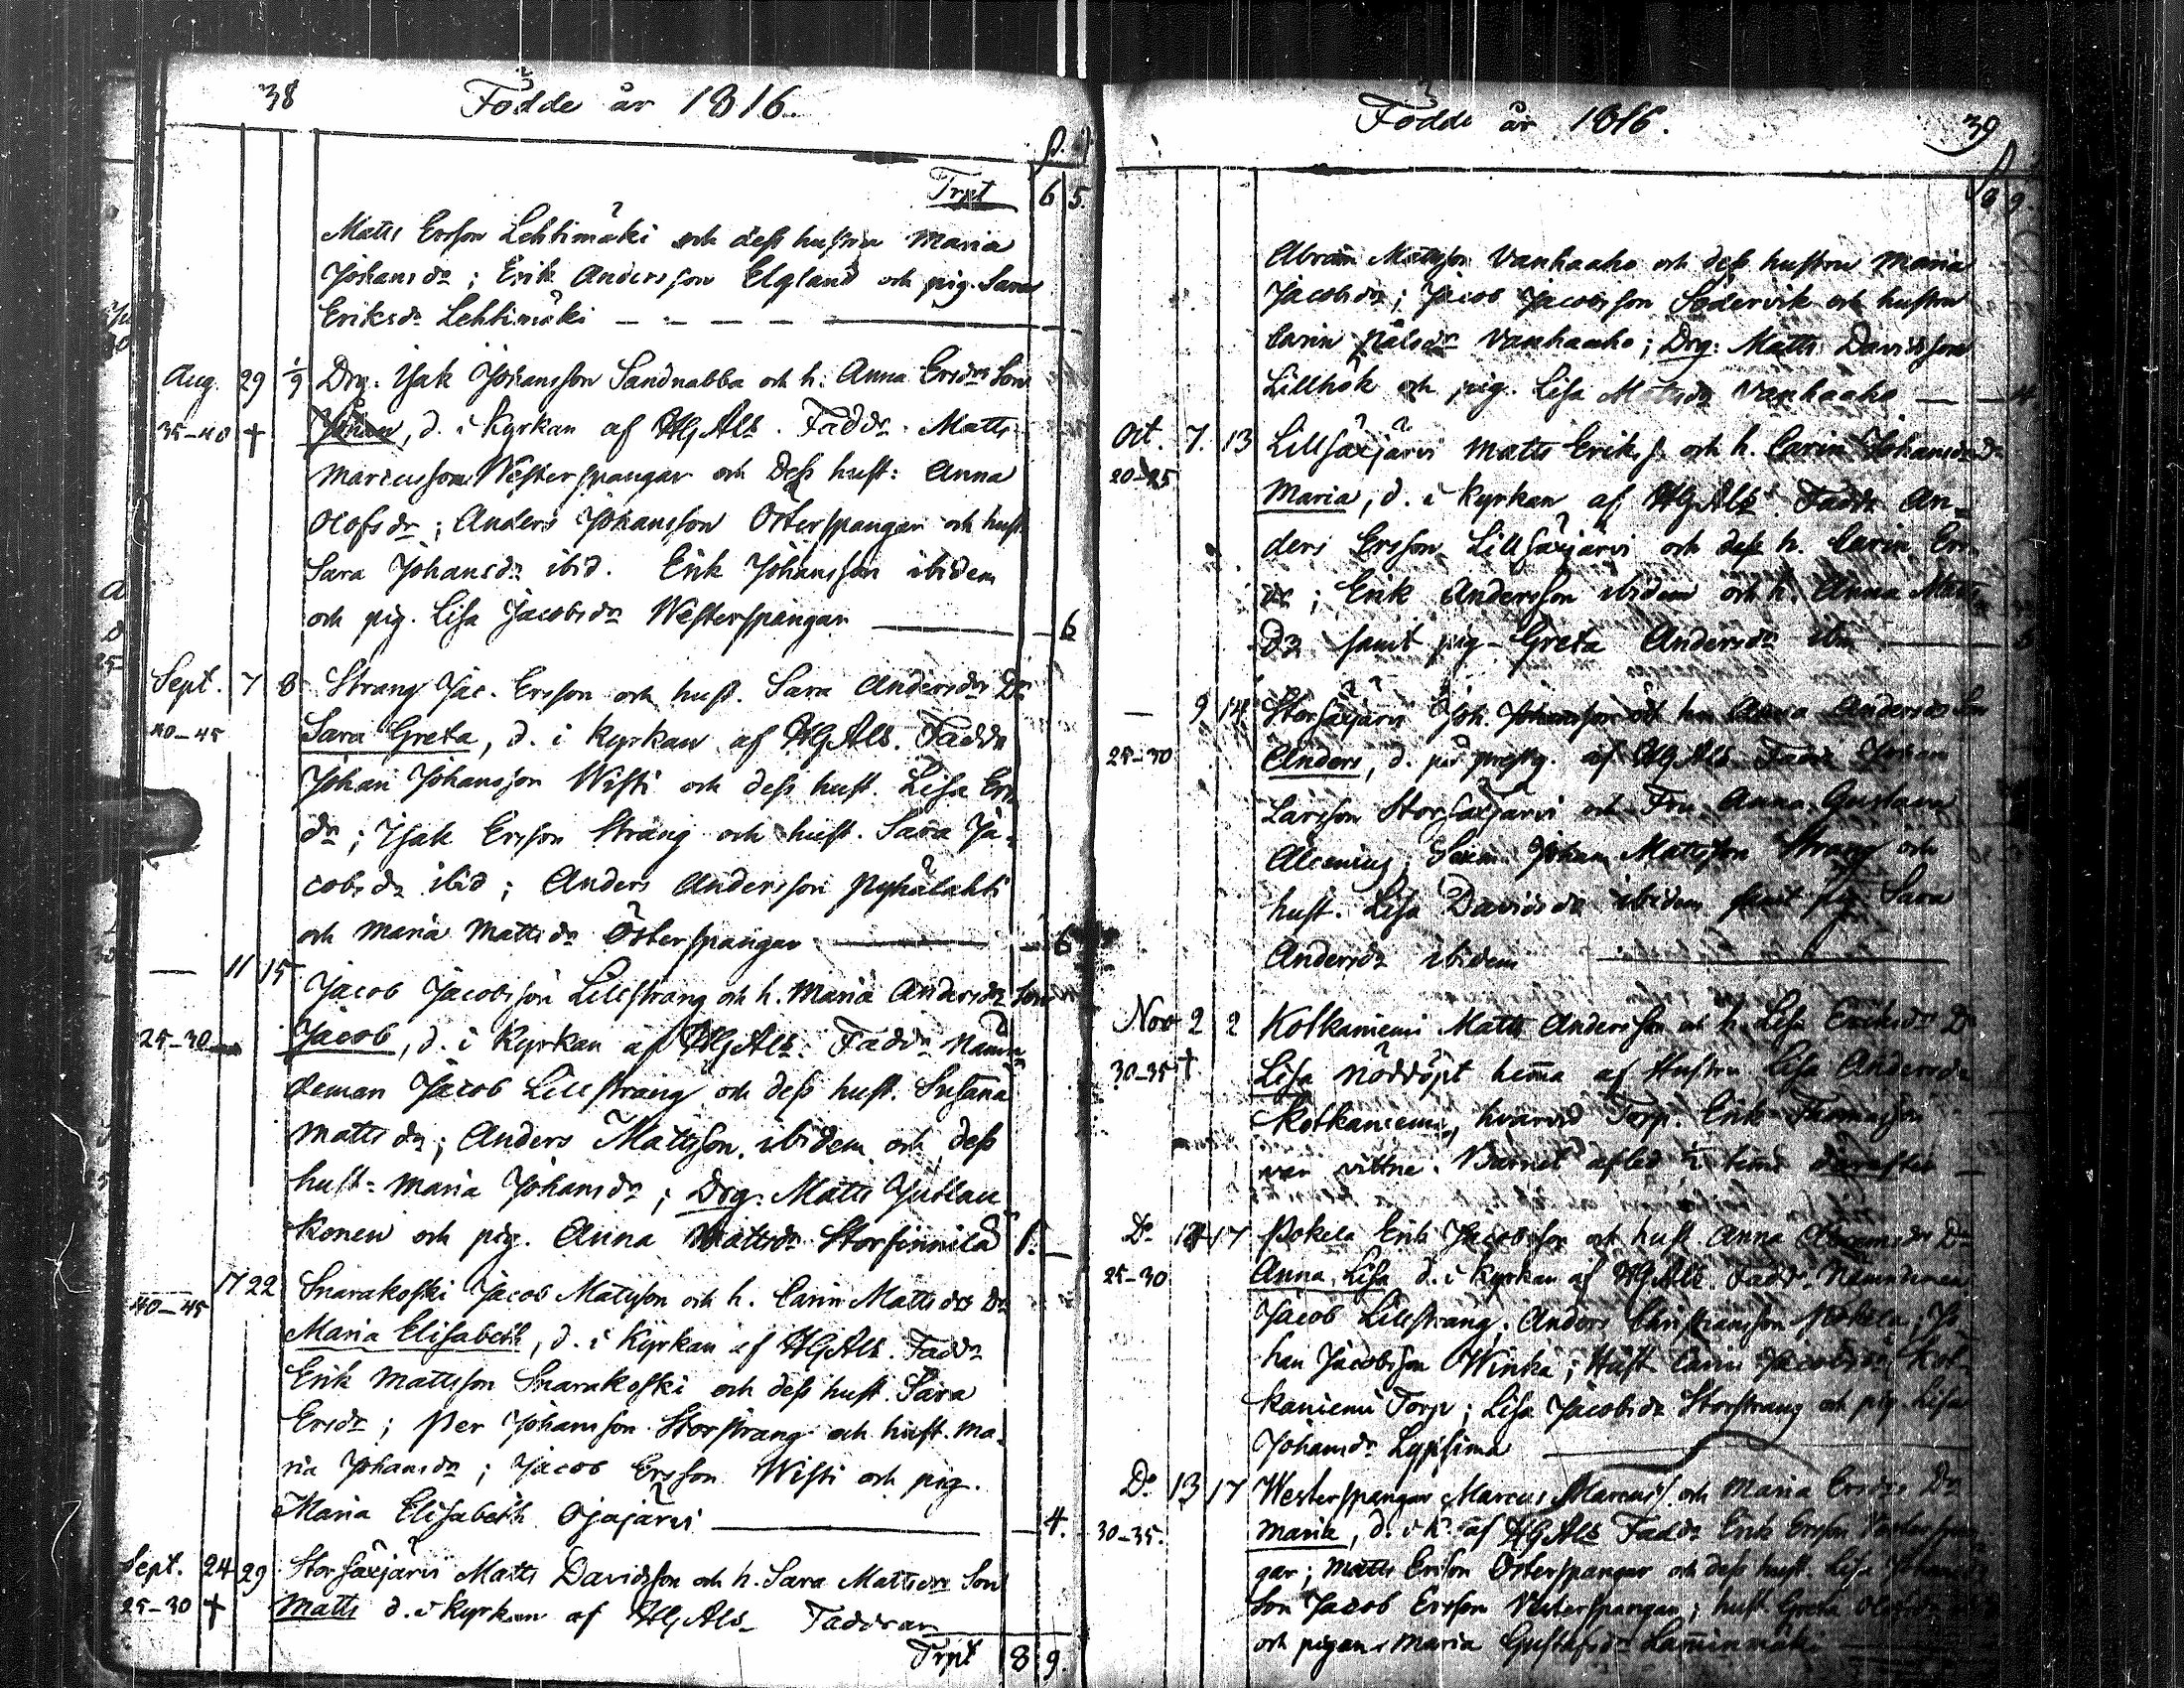 38 Födde år 1816.
Trpt 6 5.
Matts Ersson Lehtimäki och dess hustru Maria
Johansdr; Erik Andersson Elgland och pig. Sara
Eriksdr Lehtimäki
Aug. 29 1/9 Drg. Isak Johansson Sandnabba och h. Anna Ersdrs Son
35-40 † Johan, d. i Kyrkan af HGAls. Faddr. Matts
Marcusson Westerspangar och Dess hust: Anna
Olofsdr; Anders Johansson Österspangar och hust
Sara Johansdr ibid. Erik Johansson ibidem
och pig. Lisa Jacobsdr Westerspangar 6
Sept. 7 8 Strang Jac. Ersson och hust. Sara Andersdrs Dr
40-45 Sara Greta, d. i Kyrkan af HGAls. Faddr
Johan Johansson Wisti och dess hust. Lisa Ers
dr; Isak Ersson Strang och hust. Sara Ja-
cobsdr ibid; Anders Andersson Pyhälahti
och Maria Mattsdr Österspangar 6
— 11 15 Jacob Jacobsson Lillstrang och h. Maria Andersdrs Son
25-30 Jacob, d. i Kyrkan af HGAls. Faddr Nämn
deman Jacob Lillstrang och dess hust. Susana
Mattsdr; Anders Mattsson ibidem och dess
hust. Maria Johansdr; Drg. Matts
konen och pig. Anna Mattsdr Storfinnilä
— 17 22 Snarakoski Jacob Mattsson och h. Carin Mattsdrs Dr
40-45 Maria Elisabeth, d. i Kyrkan af HGAls. Faddr
Erik Mattsson Snarakoski och dess hust. Sara
Ersdr; Per Johansson Storstrang och hust. Ma-
ria Johansdr; Jacob Ersson Wisti och pig.
Maria Elisabeth Ojajärvi 4.
Sept. 24 29 Storsaxjärvi Matts Davidsson och h. Sara Mattsdrs Son
25-30 † Matts d. i Kyrkan af HGAls Faddrar
Trpt 8 9.
Födde år 1816. 39
8 9.
Abram Mattsson Vanhaaho och dess hustru Maria
Jacobsdr; Jacob Jacobsson Södervik och hustru
Carin Pålsdr Vanhaaho; Drg: Matts Davidsson
Lillhök och pig. Lisa Mattsdr Vanhaaho 4
Oct. 7. 13 Lillsaxjärvi Matts Eriks. och h. Carin Johansdrs Dr
20-25 Maria, d. i Kyrkan af HGAls. Faddr An-
ders Ersson Lillsaxjärvi och dess h. Carin Ers
dr; Erik Andersson ibidem och h. Anna Matts
dr samt pig Greta Andersdr ibm 6
— 9 14 Storsaxjärvi Joh. Johansson och h. Anna Andersdrs Son
25-30 Anders, d. på prestg. af HGAls Faddr Johan
Larsson Storsaxjärvi och Fru Anna Gustava
Alcenius; Johan Mattsson Strang och
hust. Lisa Davidsdr ibidem samt pig Sara
Andersdr ibidem
Nov 2 2 Kotkaniemi Matts Andersson och h. Lisa Eriksdrs Dr
30-35 † Lisa nöddöpt hemma af Hustru Lisa Andersdr
Kotkaniemi, hvarvid Torp. Erik Thomasson
var vittne. Barnet afled ½ time derefter
Do 17 Pokela Erik Jacobsson och hust Anna Abramsdrs Dr
25-30 Anna Lisa d. i Kyrkan af HGAls. Fadd. Nämndeman
Jacob Lillstrang; Anders Christiansson Pokela; Jo
han Jacobsson Winkä; Hust Carin Jacobsdr Kot-
kaniemi Torp; Lisa Jacobsdr Storstrang och pig. Lisa
Johansdr
Do 13 17 Westerspangar Marcus Marcuss. och Maria Ersdrs Dr
30-35. Maria, d. i K. af HGAls Faddr Erik Ersson Vesterspan
gar; Matts Ersson Österspangar och dess hust. Lisa
Jacob Ersson Vesterspangar; hust. Greta
och pigan Maria Gustafsdr Lamminmäki